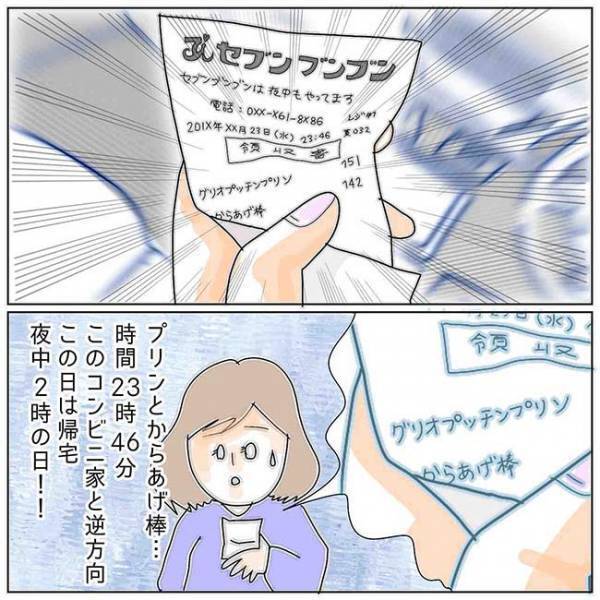 セブンブンブン
セブンブンブンは夜中もやってます
電話：0XX-X61-8X86
レジ#7
201X年XX月23日(水) 23:46 責032
領収書
151
グリオプッチンプリン
142
からあげ棒
プリンとからあげ棒…
時間23時46分
このコンビニ家と逆方向
この日は帰宅
夜中2時の日！！
(水)
領収
グリオプッチンプリン
からあげ棒